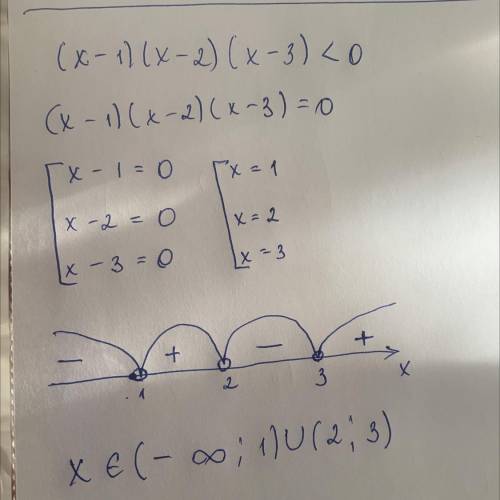 (x-1)(x-2)(x-3)<0
(x-1)(x-2)(x-3)=0
x-1=0 x=1
x-2=0 x=2
x-3=0 x=3
- + - +
1 2 3 x
x∈(-∞;1)∪(2;3)